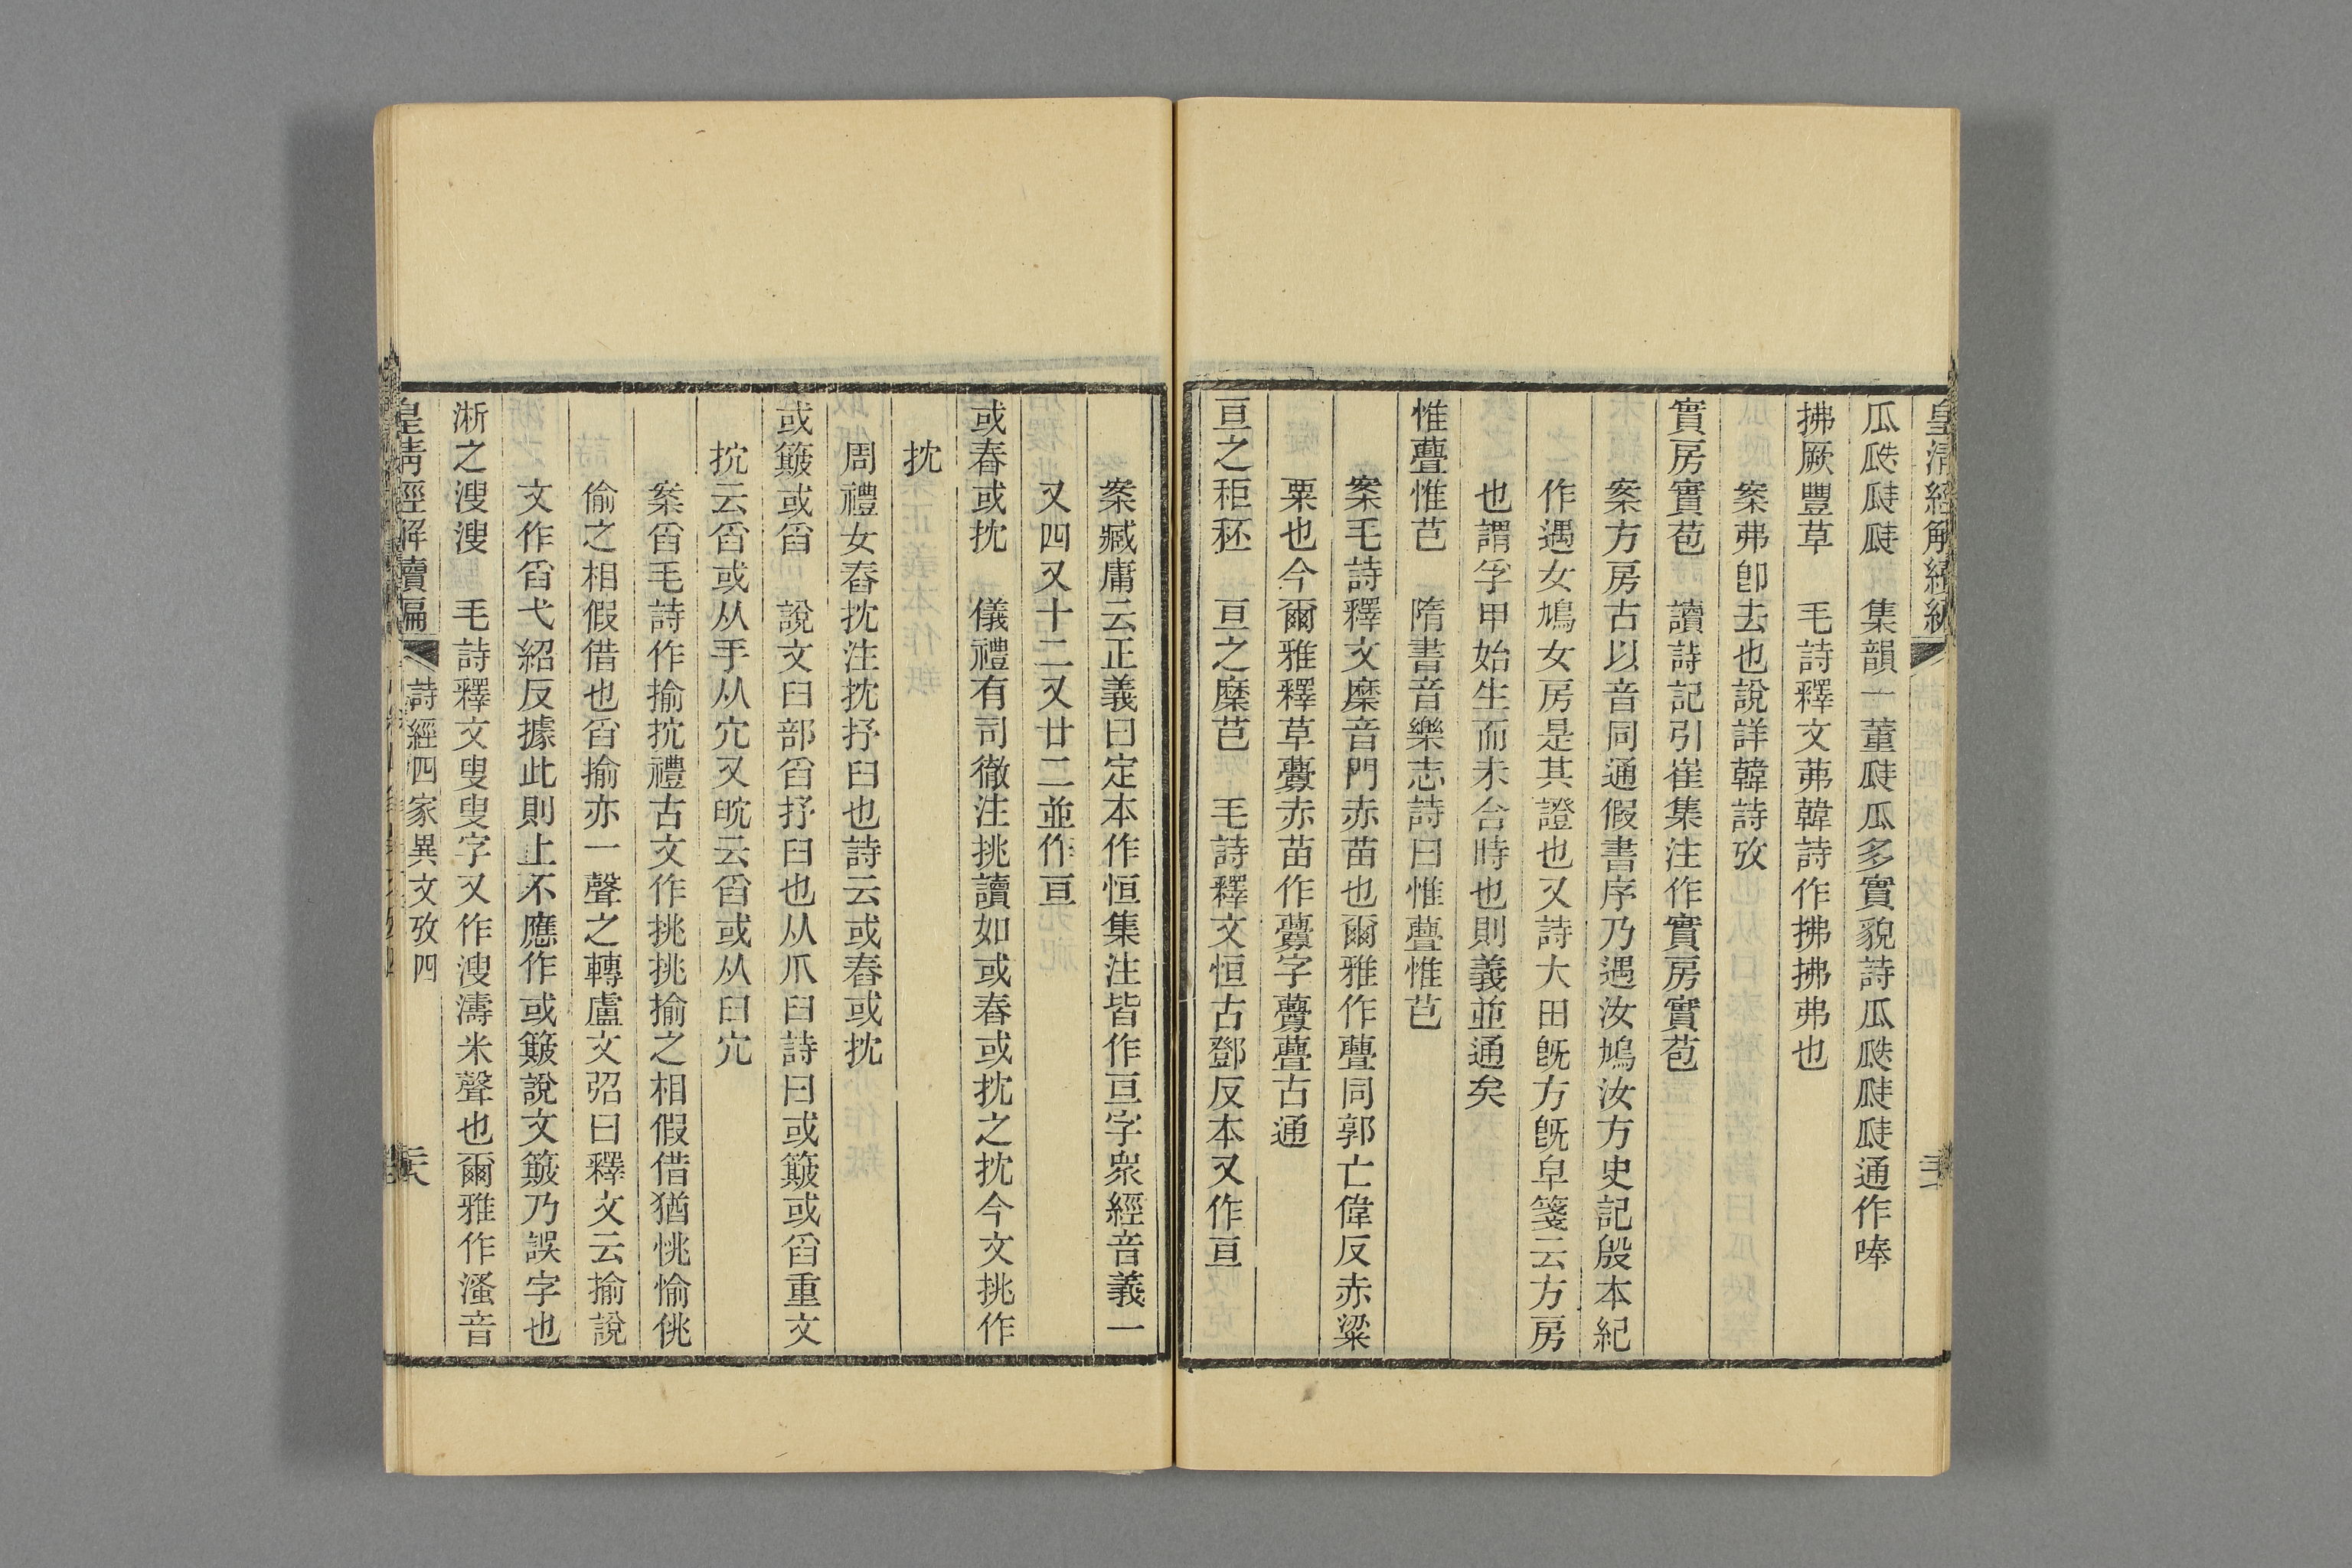 皇清經解續編
瓜瓞㼖㼖　集韻一董㼖瓜多實貌詩瓜瓞㼖㼖通作唪
拂厥豐草　毛詩釋文茀韓詩作拂拂弗也
案弗卽去也說詳韓詩攷
實房實苞　讀詩記引崔集注作實房實苞
案方房古以音同通假書序乃遇汝鳩汝方史記殷本紀
作遇女鳩女房是其證也又詩大田旣方旣皁箋云方房
也謂孚甲始生而未合時也則義並通矣
惟虋惟芑　隋書音樂志詩曰惟虋惟芑
案毛詩釋文穈音門赤苗也爾雅作虋同郭亡偉反赤粱
粟也今爾雅釋草虋赤苗作虋字虋虋古通
亘之秬秠　亘之穈芑　毛詩釋文恒古鄧反本又作亘
案臧庸云正義曰定本作恒集注皆作亘字衆經音義一
又四又十二又廿二並作亘
或舂或抌　儀禮有司徹注挑讀如或舂或抌之抌今文挑作
抌
周禮女舂抌注抌抒臼也詩云或舂或抌
或簸或舀　說文臼部舀抒臼也从爪臼詩曰或簸或舀重文
抭云舀或从手从宂又㲾云舀或从臼宂
案舀毛詩作揄抭禮古文作挑挑揄之相假借猶恌愉佻
偷之相假借也舀揄亦一聲之轉盧文弨曰釋文云揄說
文作舀弋紹反據此則上不應作或簸說文簸乃誤字也
淅之溲溲　毛詩釋文叟叟字又作溲濤米聲也爾雅作溞音
皇清經解續編　詩經四家異文攷四